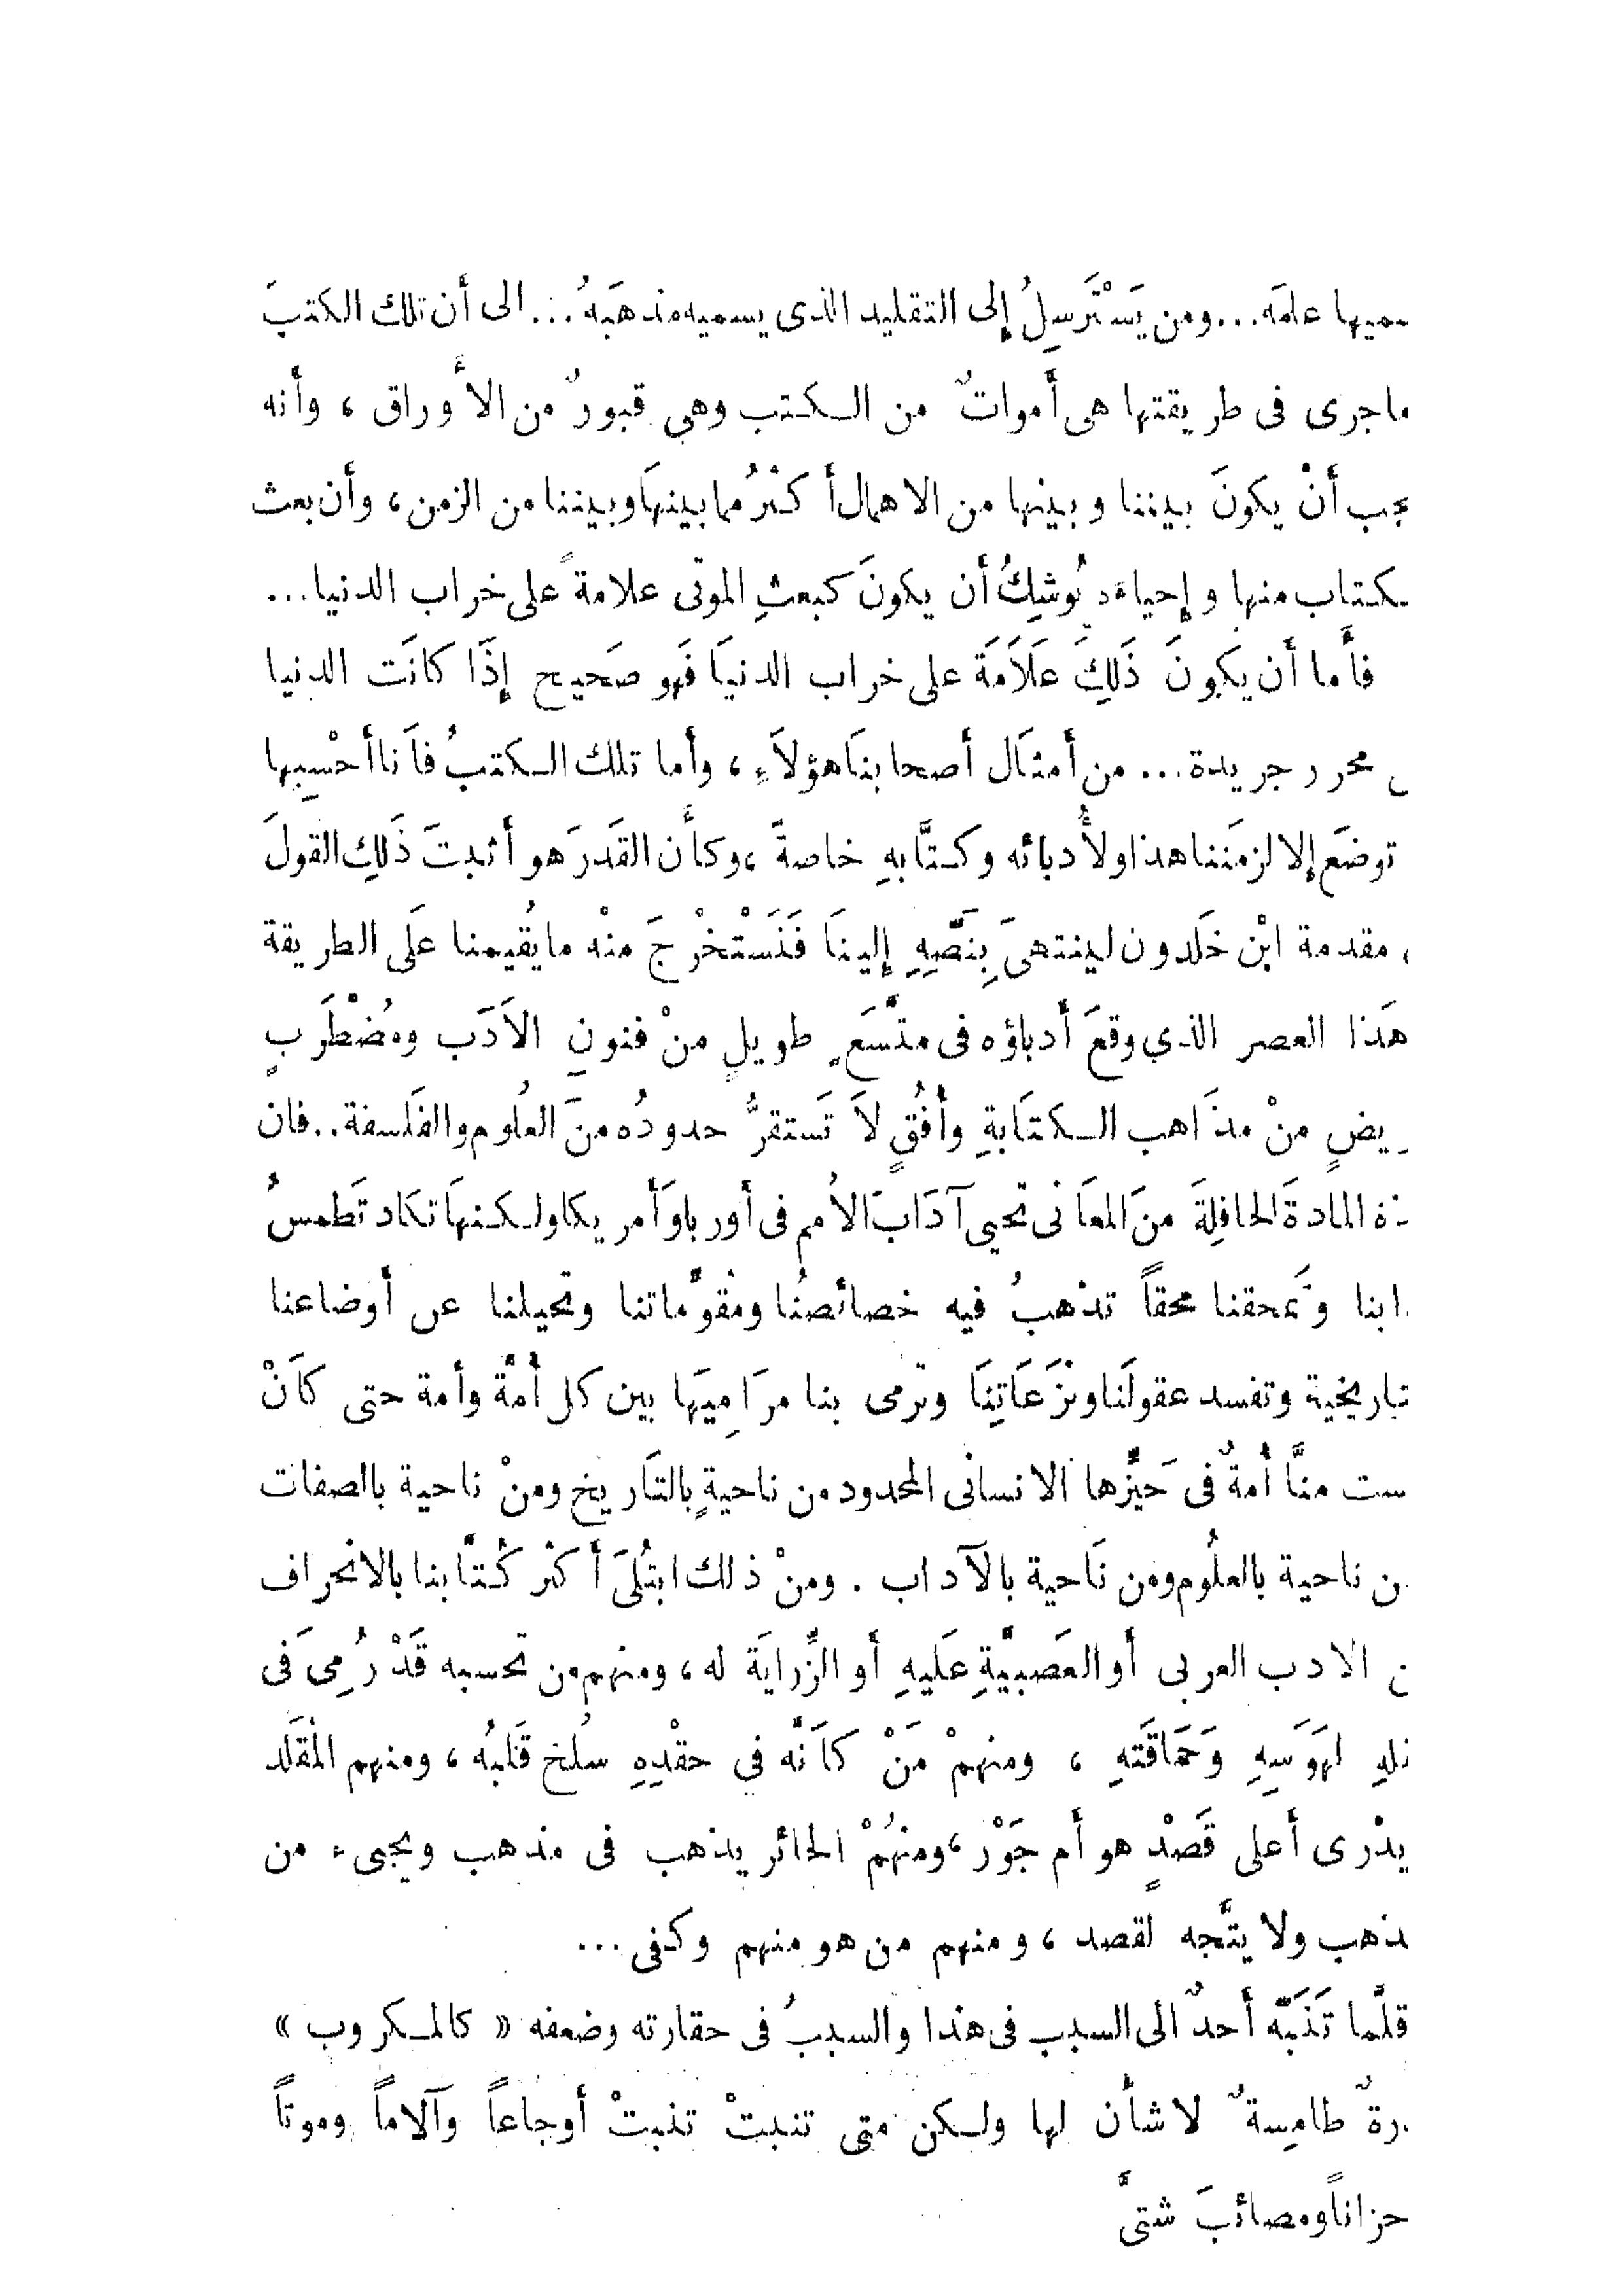 سميها علمَه... ومن يَسْتَرسِلُ إلى التقليد الذى يسميه مذهَبَهُ... الى أن تلك الكتبَ
ماجرى فى طريقتها هى أمواتٌ من الكتب وهي قبورٌ من الأوراق ، وأنه
يجب أنْ يكونَ بيننا وبينها من الاهمال أكثرُ مما بينهَا وبيننا من الزمن ، وأن بعث
كتاب منها وإحياءَه يُوشِكُ أن يكونَ كبعثِ الموتى علامةً على خراب الدنيا...
فأما أن يكونَ ذَلِكَ عَلاَمَة على خراب الدنيَا فَهو صَحيح إذَا كانَت الدنيا
محرر جريدة... من أمثَال أصحابنَا هؤلاَءِ ، وأما تلك الكتبُ فأنا أحْسِبها
توضَع إلا لزمَننا هذا ولأدبائه وكتَّابهِ خاصةً ، وكأن القَدرَ هو أثبتَ ذَلِك القولَ
مقدمة ابْن خَلدون لينتهىَ بِنَصِّهِ إلينَا فَنَسْتَخْرجَ منْه مايُقيمنا عَلَى الطريقة
هَذا العصر الذي وقعَ أدباؤه فى متَّسَعٍ طويلٍ منْ فنونِ الاَدَب ومُضْطَربٍ
يضٍ منْ مذَاهب الكتَابةِ وأُفُقٍ لاَ تَستقرُّ حدودُه منَ العلُوم والفَلسفة.. فان
ذه المادةَ الحافِلةَ منَ المعَانى تحيى آدَابَ الاُمم فى أوربا وَأمريكا ولكنهَا تكاد تَطمسُ
ابنا وتَمحقنا محقاً تذهبُ فيه خصائصنُا ومُقوِّماتنا وتحيلنا عن أوضاعنا
تاريخية وتفسد عقولَنا ونزَعَاتِنَا وترمى بنا مرَامِيَها بين كل أُمَّة وأمة حتى كَانْ
ست منَّا أُمةٌ فى حَيِّزها الانسانى المحدود من ناحيةٍ بالتَاريخ ومنْ ناحية بالصفات
من ناحية بالعلُوم ومن نَاحية بالآداب . ومنْ ذلك ابتُلىَ أكثر كُتَّابنا بالانحراف
ن الادب العربى أو العَصبيَّةِ عَليهِ أو الزِّرايَة له ، ومنهم من تحسبه قَدْ رُمِىَ فى
قلهِ لهَوَسِهِ وَحَمَاقَتَهِ ، ومنهمْ مَنْ كَاَنَّه في حقْدِهِ سُلخ قَلبُه ، ومنهم المُقَلد
يدْرى أعلى قَصْدٍ هو أم جَوْر ، ومنهُمْ الحائر يذهب فى مذهب ويجىء من
ذهب ولا يتَّجه لقصد ، ومنهم من هو منهم وكفى ...
قلَّما تَنَبَّه أحدٌ الى السبب فى هذا والسببُ فى حقارته وضعفه « كالمكروب »
رةٌ طامِسةٌ لا شأن لها ولكن متى تنبتْ تنبتْ أوجاعاً وآلاماً وموتاً
حزاناً ومصائبَ شتىَّ